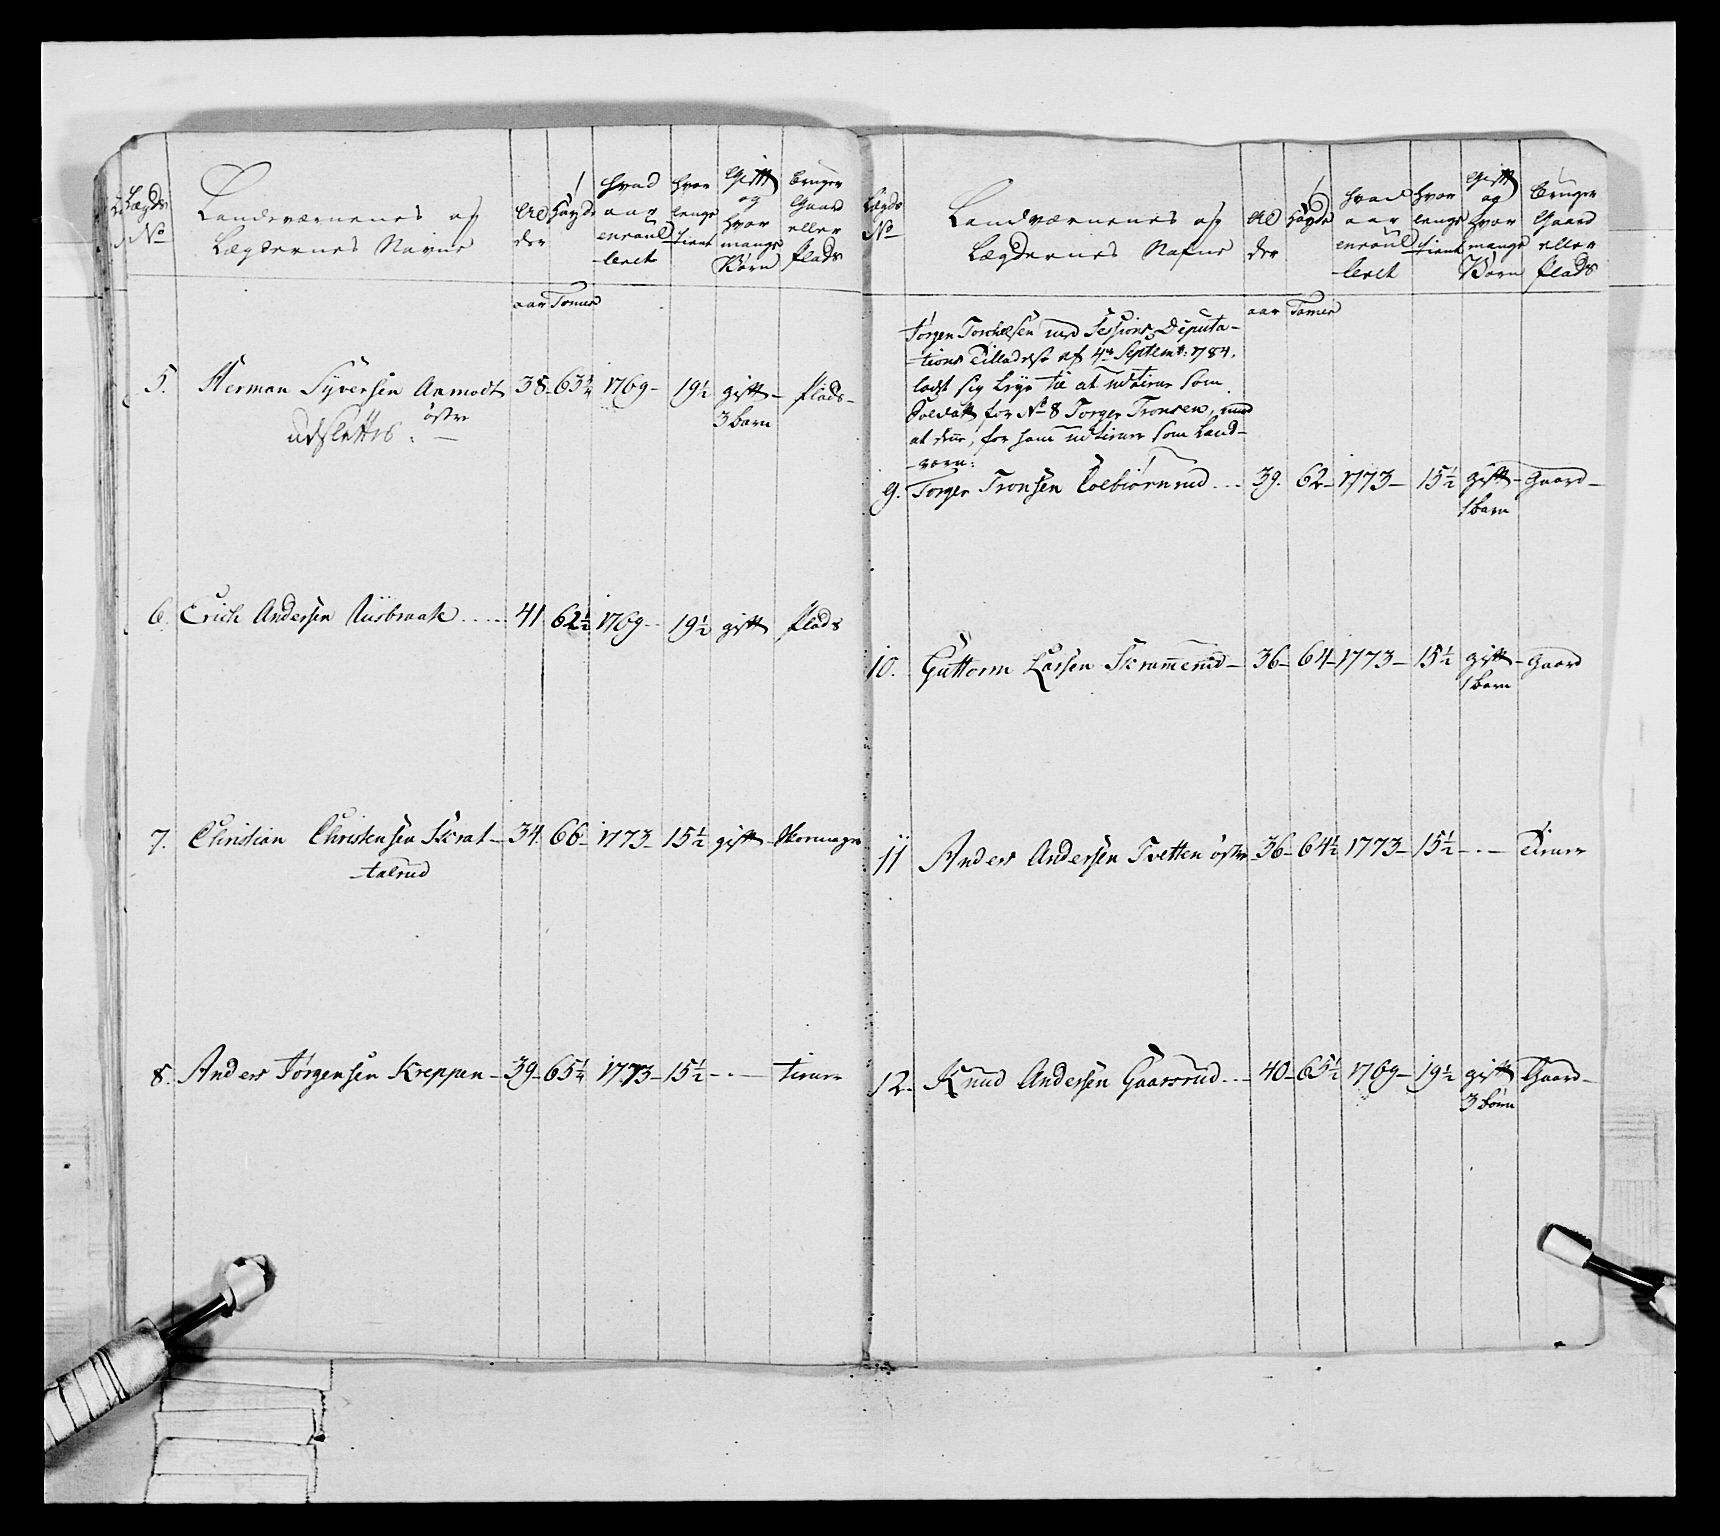 Lægds
No
Landeværnenes og
Lægdernes Navne
Al
der
Høyde
hvad
aar
enroul
leret
hvor
lenge
tient
Gift
og
hvor
mange
Børn
bruger
Gaard
eller
Plads
aar Tomer
5. Herman Syversen Aamodt 38 63½ 1769 19½ gift Plads
østre 3 barn
udslettes.
6. Erich Andersen 41 62½ 1769 19½ gift Plads
7. Christian Christensen Skrat- 34 66 1773 15½ gift
-talrud
8. Anders Jørgensen Kreppen 39 65½ 1773 15½ - . - tiener
Lægds
No
Landværnenes og
Lægdernes Nafne
Al
der
Høyde
hvad
aar
enroul
leret
hvor
lenge
tient
Gift
og
hvor
mange
Børn
bruger
Gaard
eller
Plads
aar Tomer
Jørgen ved Sessions Deputa-
-tions Tilladelse af 4de Septembr: 1784,
ladt sig leye til at udtiene som
Soldat for No 8 Torger Tronsen, med
at denne, for ham udtiener som Land-
-værn:
9. Torger Tronsen Colbiørnrud 39. 62 1773 15½ gift Gaard
1 barn
10. Guttorm Larsen Skramerud 36 64 1773 15½ gift Gaard
1 barn
11 Anders Andersen Tvetten østre 36 64½ 1773 15½ - . - Tiener
12. Knud Andersen Gaarsrud 40 65½ 1769 19½ gift Gaard
3 børn